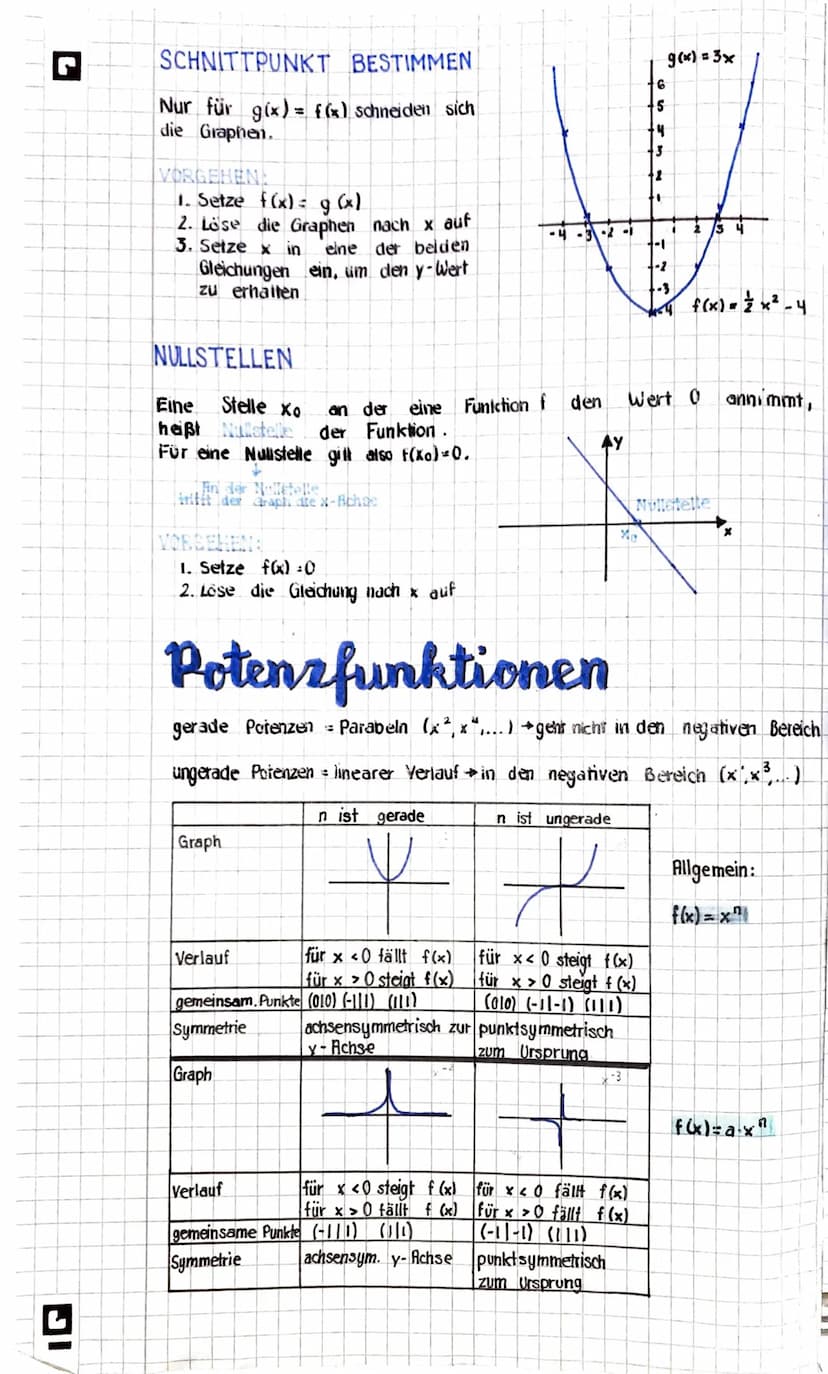 SCHNITTPUNKT BESTIMMEN
Nur für g(x) = f(x) schneiden sich
die Graphen.
VORGEHEN:
1. Setze f(x) = g(x)
2. Löse die Graphen nach x auf
3. Setze x in eine der beiden
Gleichungen ein, um den y-Wert
zu erhalten
g(x) = 3x
6
5
4
3
2
1
-4 -3 -2 -1 1 2 3 4
-1
-2
-3
-4
f(x) = 1/2 x² - 4
NULLSTELLEN
Eine Stelle x₀ an der eine Funktion f den Wert 0 annimmt,
heißt Nullstelle der Funktion.
Für eine Nullstelle gilt also f(x₀)=0.
An der Nullstelle
tritft der Graph die x-Achse
y
Nullstelle
x₀
x
VORGEHEN:
1. Setze f(x) = 0
2. Löse die Gleichung nach x auf
Potenzfunktionen
gerade Potenzen = Parabeln (x², x⁴, ...) → geht nicht in den negativen Bereich
ungerade Potenzen = linearer Verlauf → in den negativen Bereich (x¹, x³, ...)
n ist gerade n ist ungerade
Graph
Allgemein:
f(x) = xⁿ
Verlauf für x < 0 fällt f(x) für x < 0 steigt f(x)
für x > 0 steigt f(x) für x > 0 steigt f(x)
gemeinsam. Punkte (0|0) (-1|1) (1|1) (0|0) (-1|-1) (1|1)
Symmetrie achsensymmetrisch zur punktsymmetrisch
y-Achse zum Ursprung
Graph x⁻² x⁻³
f(x) = a · xⁿ
Verlauf für x < 0 steigt f(x) für x < 0 fällt f(x)
für x > 0 fällt f(x) für x > 0 fällt f(x)
gemeinsame Punkte (-1|1) (1|1) (-1|-1) (1|1)
Symmetrie achsensym. y-Achse punktsymmetrisch
zum Ursprung